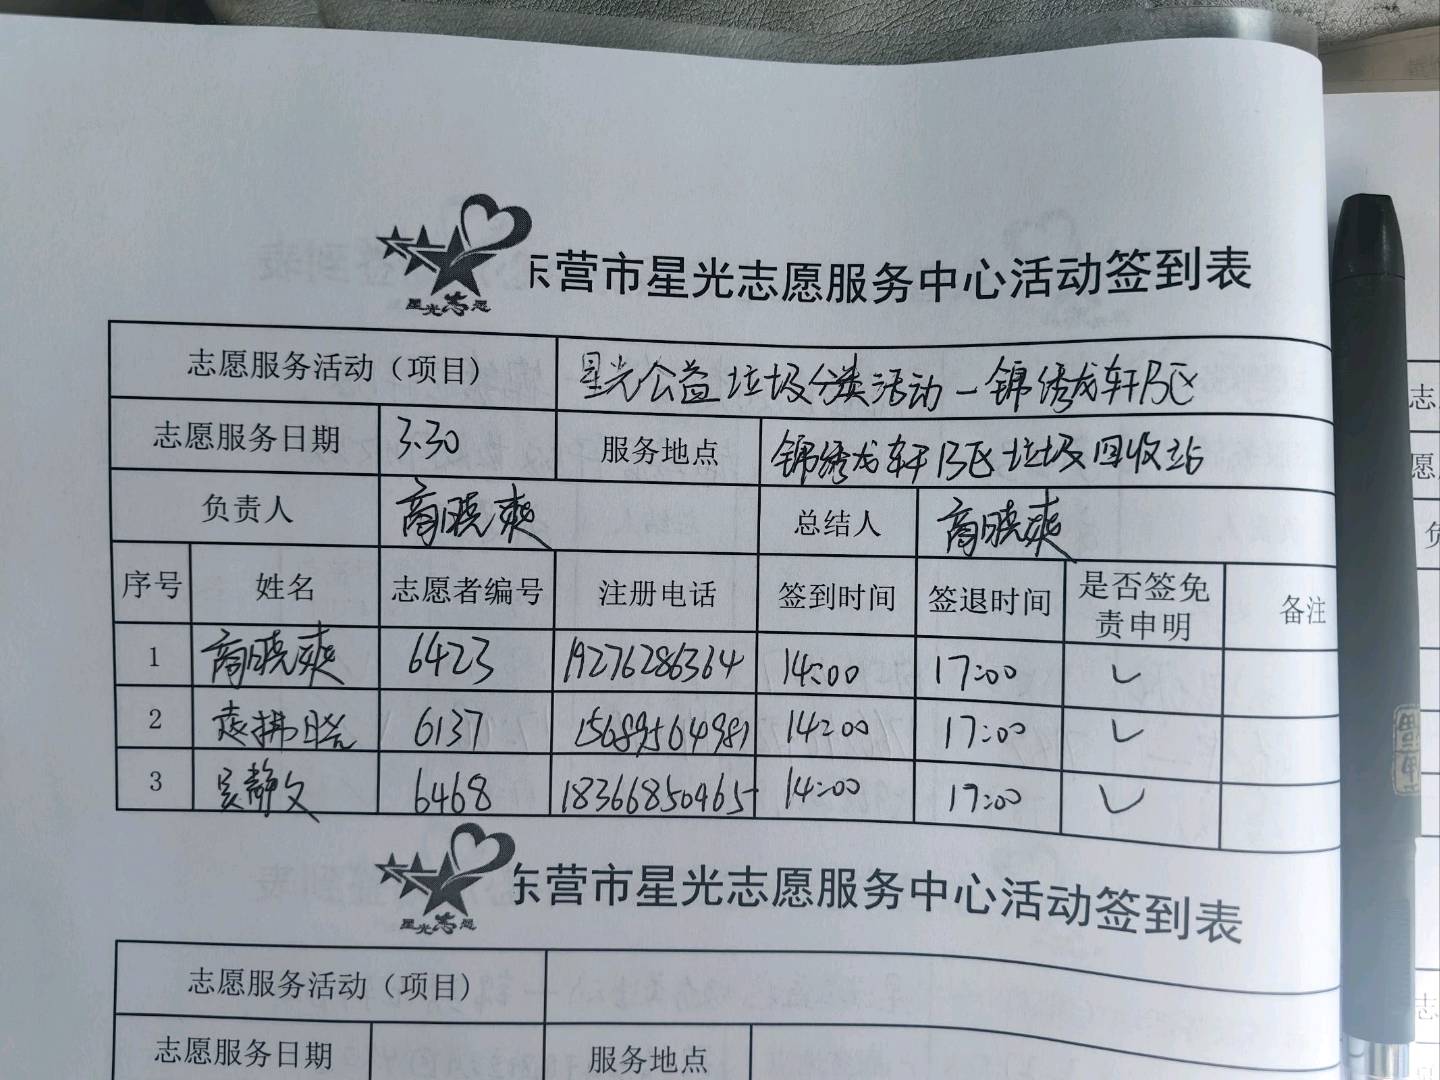 星光志愿
东营市星光志愿服务中心活动签到表
志愿服务活动（项目） 星光公益垃圾分类活动-锦绣龙轩B区
志愿服务日期 3.30 服务地点 锦绣龙轩B区垃圾回收站
负责人 商晓爽 总结人 商晓爽
序号 姓名 志愿者编号 注册电话 签到时间 签退时间 是否签免责申明 备注
1 商晓爽 6423 19276286364 14:00 17:00 ✓
2 拂晓 6137 15689564981 14:00 17:00 ✓
3 吴静文 6468 18366850465 14:00 17:00 ✓
星光志愿
东营市星光志愿服务中心活动签到表
志愿服务活动（项目）
志愿服务日期 服务地点